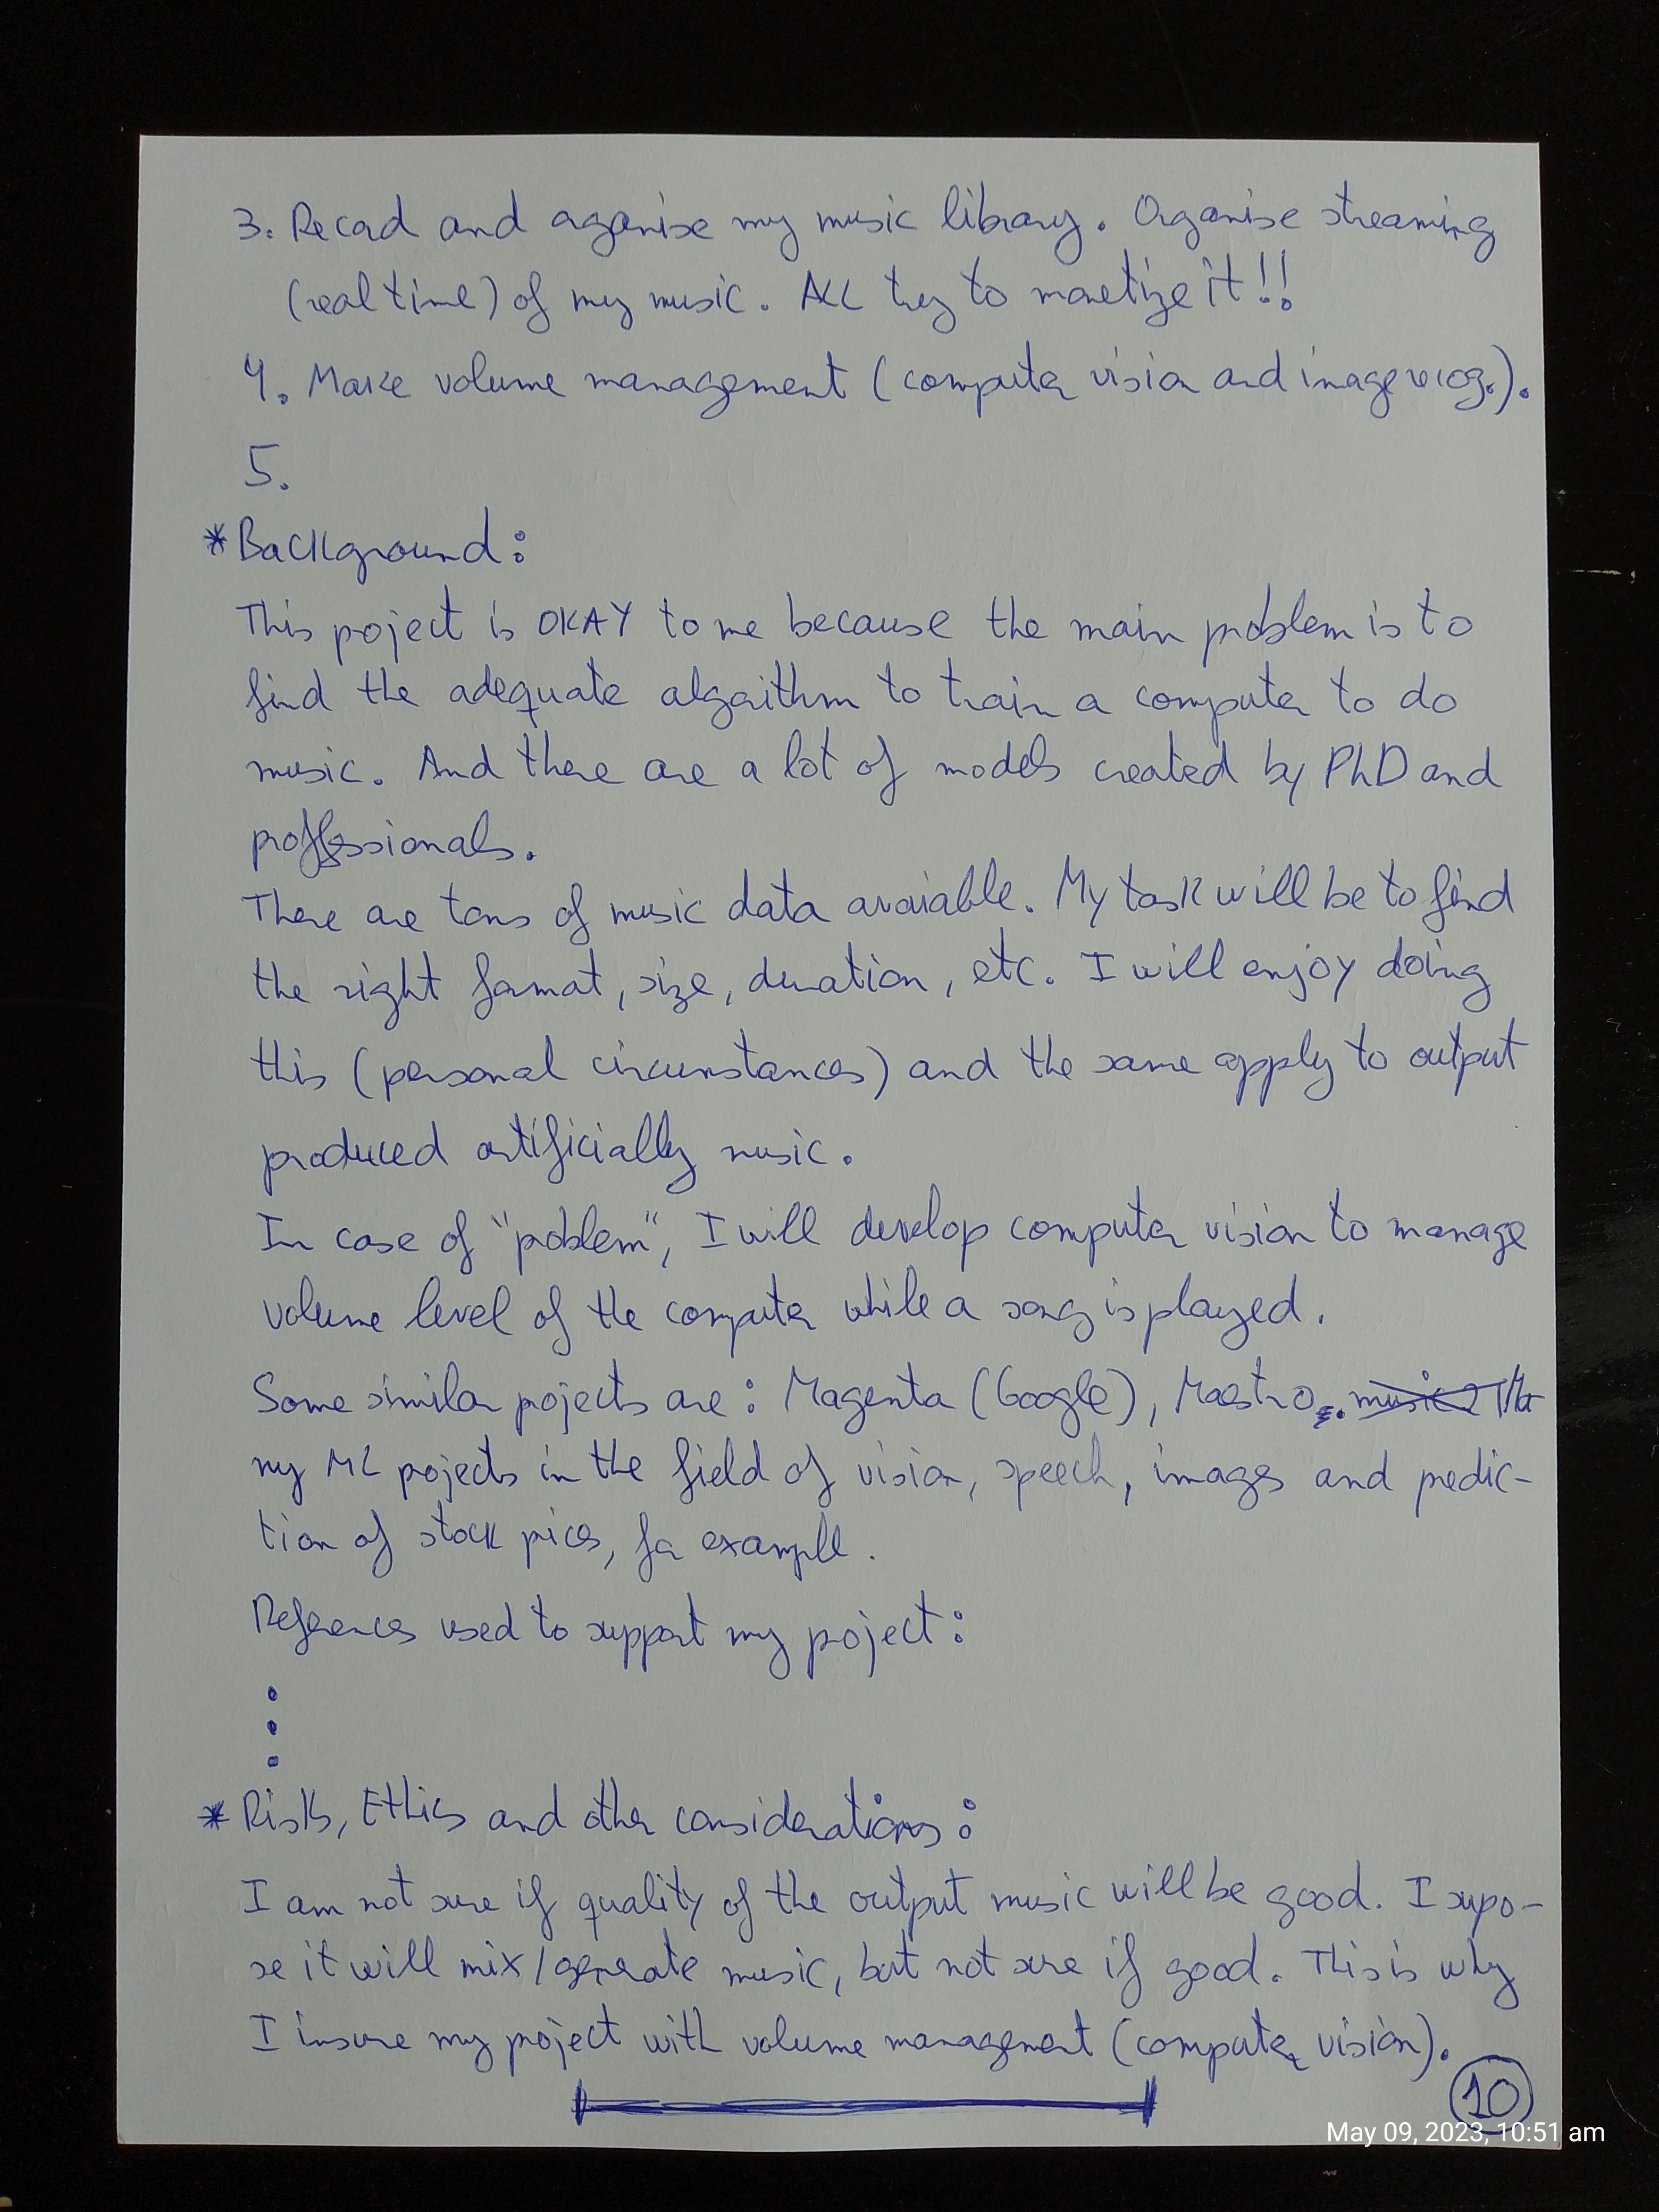 3. Record and organise my music library. Organise streaming
(real time) of my music. ALL try to monetize it!!
4. Make volume management (computer vision and image recog.).
5.
*Background:
This project is OKAY to me because the main problem is to
find the adequate algorithm to train a computer to do
music. And there are a lot of models created by PhD and
proffessionals.
There are tons of music data avaiable. My task will be to find
the right format, size, duration, etc. I will enjoy doing
this (personal circumstances) and the same apply to output
produced artificially music.
In case of "problem", I will develop computer vision to manage
volume level of the computer while a song is played.
Some similar projects are: Magenta (Google), Maestro.
my ML projects in the field of vision, speech, images and predic-
tion of stock prices, for example.
References used to support my project:
*Risks, Ethics and other considerations:
I am not sure if quality of the output music will be good. I supo-
se it will mix/generate music, but not sure if good. This is why
I insure my project with volume management (computer vision).
10
May 09, 2023, 10:51 am